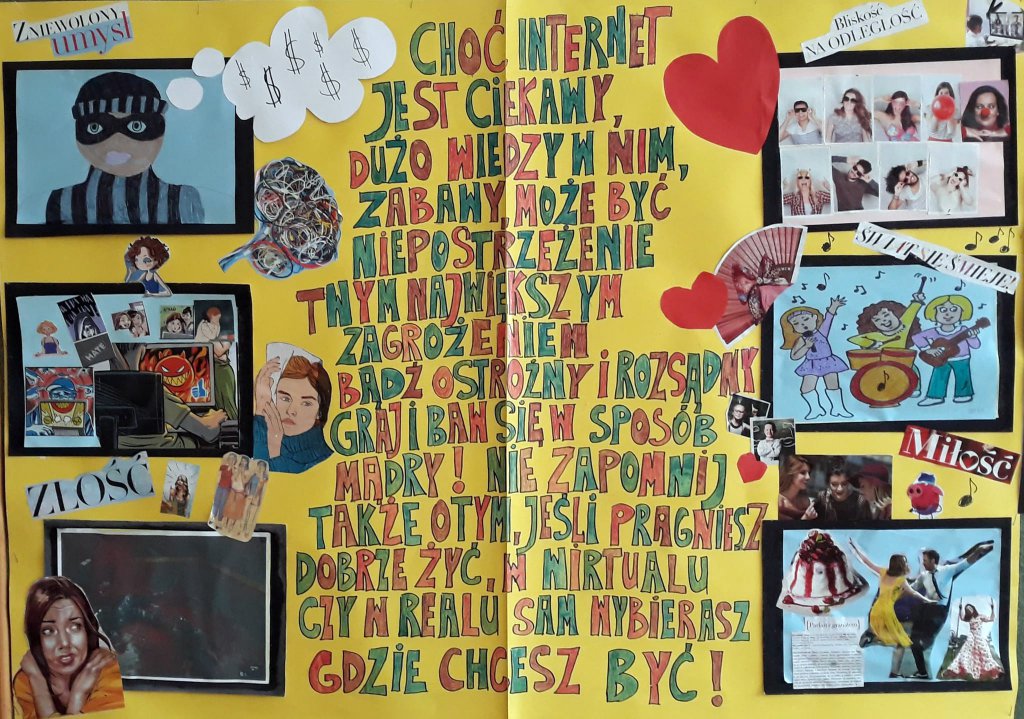 ZNIEWOLONY
umysł
$ $ $ $ $
CHOĆ INTERNET
JEST CIEKAWY,
DUŻO WIEDZY W NIM,
ZABAWY, MOŻE BYĆ
NIEPOSTRZEŻENIE
TWYM NAJWIĘKSZYM
ZAGROŻENIEM
BĄDŹ OSTROŻNY I ROZSĄDNY
GRAJ I BAW SIĘ W SPOSÓB
MĄDRY! NIE ZAPOMNIJ
TAKŻE O TYM, JEŚLI PRAGNIESZ
DOBRZE ŻYĆ, W WIRTUALU
CZY W REALU SAM WYBIERASZ
GDZIE CHCESZ BYĆ!
HATE
ZŁOŚĆ
Bliskość
NA ODLEGŁOŚĆ
ŚWIAT SIĘ ŚMIEJE!
Miłość